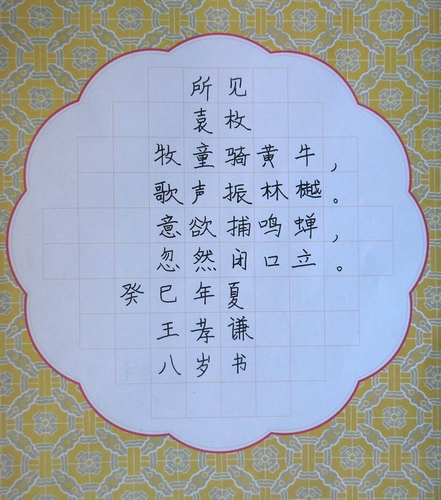 所见
袁枚
牧童骑黄牛，
歌声振林樾。
意欲捕鸣蝉，
忽然闭口立。
癸巳年夏
王孝谦
八岁书